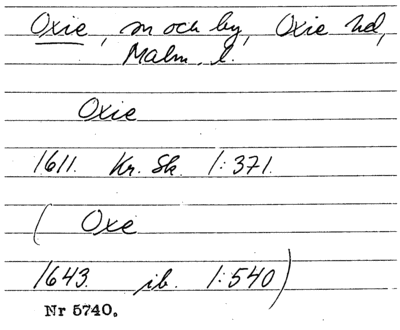 Oxie, sn och by, Oxie hd,
Malm. l.
Oxie
1611. Kr. Sk. 1:371.
( Oxe
1643. ib. 1:540)
Nr 5740.